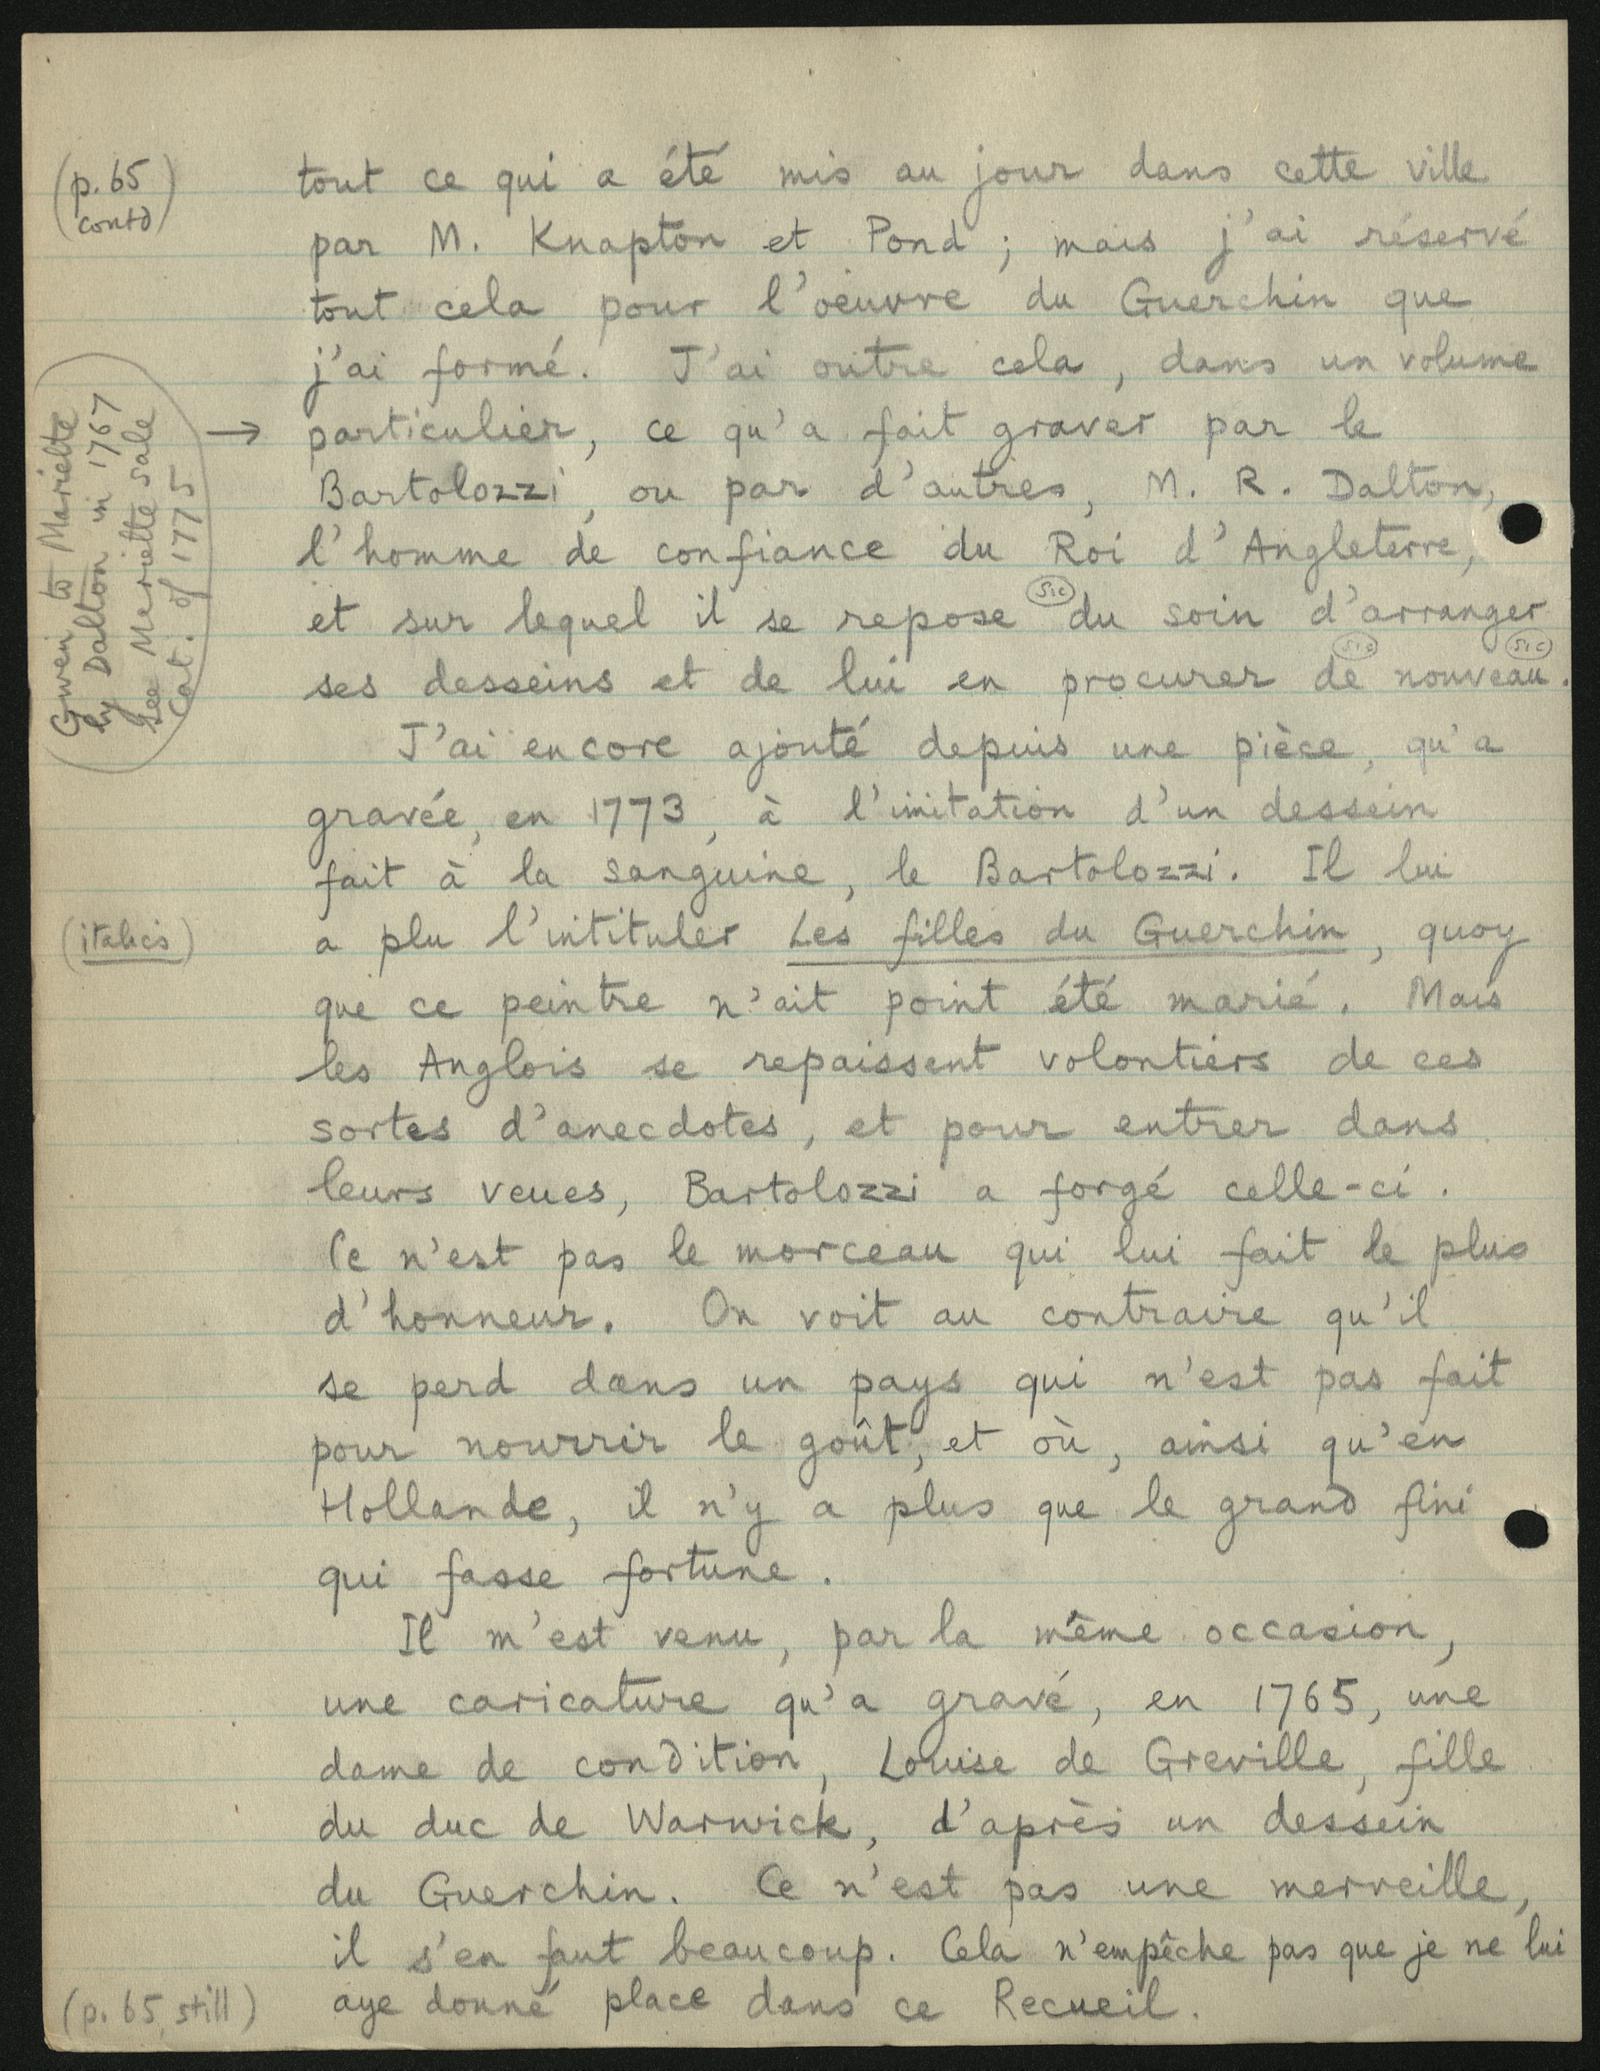 (p. 65
contd)
tout ce qui a été mis au jour dans cette ville
par M. Knapton et Pond ; mais j'ai réservé
tout cela pour l'oeuvre du Guerchin que
j'ai formé. J'ai outre cela, dans un volume
(Given to Mariette
by Dalton in 1767
See Mariette sale
cat. of 1775)
→ particulier, ce qu'a fait graver par le
Bartolozzi, ou par d'autres, M. R. Dalton,
l'homme de confiance du Roi d'Angleterre,
et sur lequel il se repose (sic) du soin d'arranger
ses desseins et de lui en procurer de (sic) nouveau (sic).
J'ai encore ajouté depuis une pièce, qu'a
gravée, en 1773, à l'imitation d'un dessein
fait à la sanguine, le Bartolozzi. Il lui
(italics)
a plu l'intituler Les filles du Guerchin, quoy
que ce peintre n'ait point été marié. Mais
les Anglois se repaissent volontiers de ces
sortes d'anecdotes, et pour entrer dans
leurs veues, Bartolozzi a forgé celle-ci.
Ce n'est pas le morceau qui lui fait le plus
d'honneur. On voit au contraire qu'il
se perd dans un pays qui n'est pas fait
pour nourrir le goût, et où, ainsi qu'en
Hollande, il n'y a plus que le grand fini
qui fasse fortune.
Il m'est venu, par la même occasion,
une caricature qu'a gravé, en 1765, une
dame de condition, Louise de Greville, fille
du duc de Warwick, d'après un dessein
du Guerchin. Ce n'est pas une merveille,
il s'en faut beaucoup. Cela n'empêche pas que je ne lui
(p. 65, still)
aye donné place dans ce Recueil.